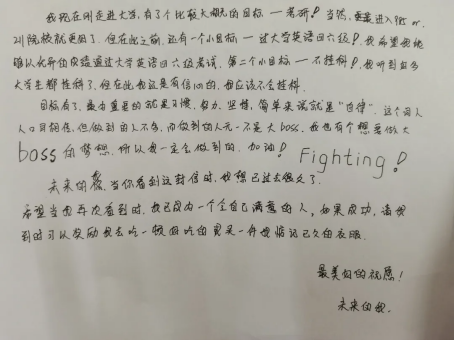 我现在刚走进大学，有了个比较大的目标 — 考研！当然，进入985 or
211院校就更好了。但在此之前，还有一个小目标 — 过大学英语四六级！我希望我能
够以优异的成绩通过大学英语四六级考试，第二个小目标 — 不挂科！我听到好多
大学生都挂科了，但在此我还是有信心的，我应该不会挂科。
目标有了，最重要的就是习惯，努力，坚持，简单来说就是“自律”，这个词人
人口耳相传，但做到的人不多，而做到的人无一不是大boss，我也有个想要做大
boss的梦想，所以我一定会做到的，加油！Fighting！
未来的我，当你看到这封信时，我想已过去很久了。
希望当你再次看到时，我已成为一个令自己满意的人，如果成功，请你
到时可以奖励我去吃一顿好吃的，买一件我惦记已久的衣服。
最美好的祝愿！
未来的我。